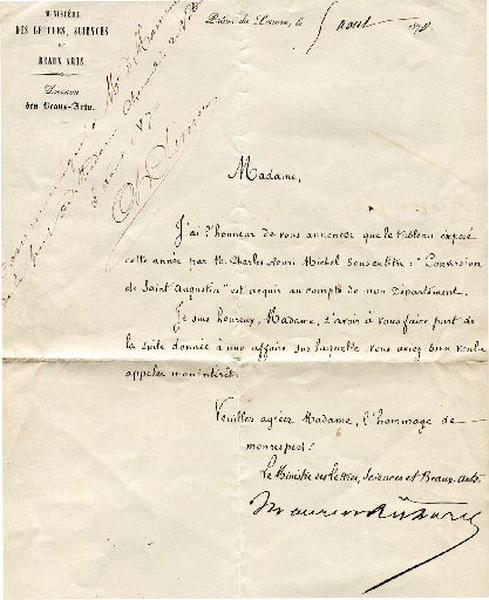 MINISTÈRE
DES LETTRES, SCIENCES
ET
BEAUX ARTS.
Division
des Beaux-Arts.
Palais du Louvre, le 5 août 1870
Madame,
J'ai l'honneur de vous annoncer que le tableau exposé
cette année par M. Charles Henri Michel sous ce titre : "Conversion
de Saint Augustin" est acquis au compte de mon Département.
Je suis heureux, Madame, d'avoir à vous faire part de
la suite donnée à une affaire sur laquelle vous aviez bien voulu
appeler mon intérêt.
Veuillez agréer Madame, l'hommage de
mon respect.
Le Ministre des Lettres, Sciences et Beaux-Arts.
Maurice Richard